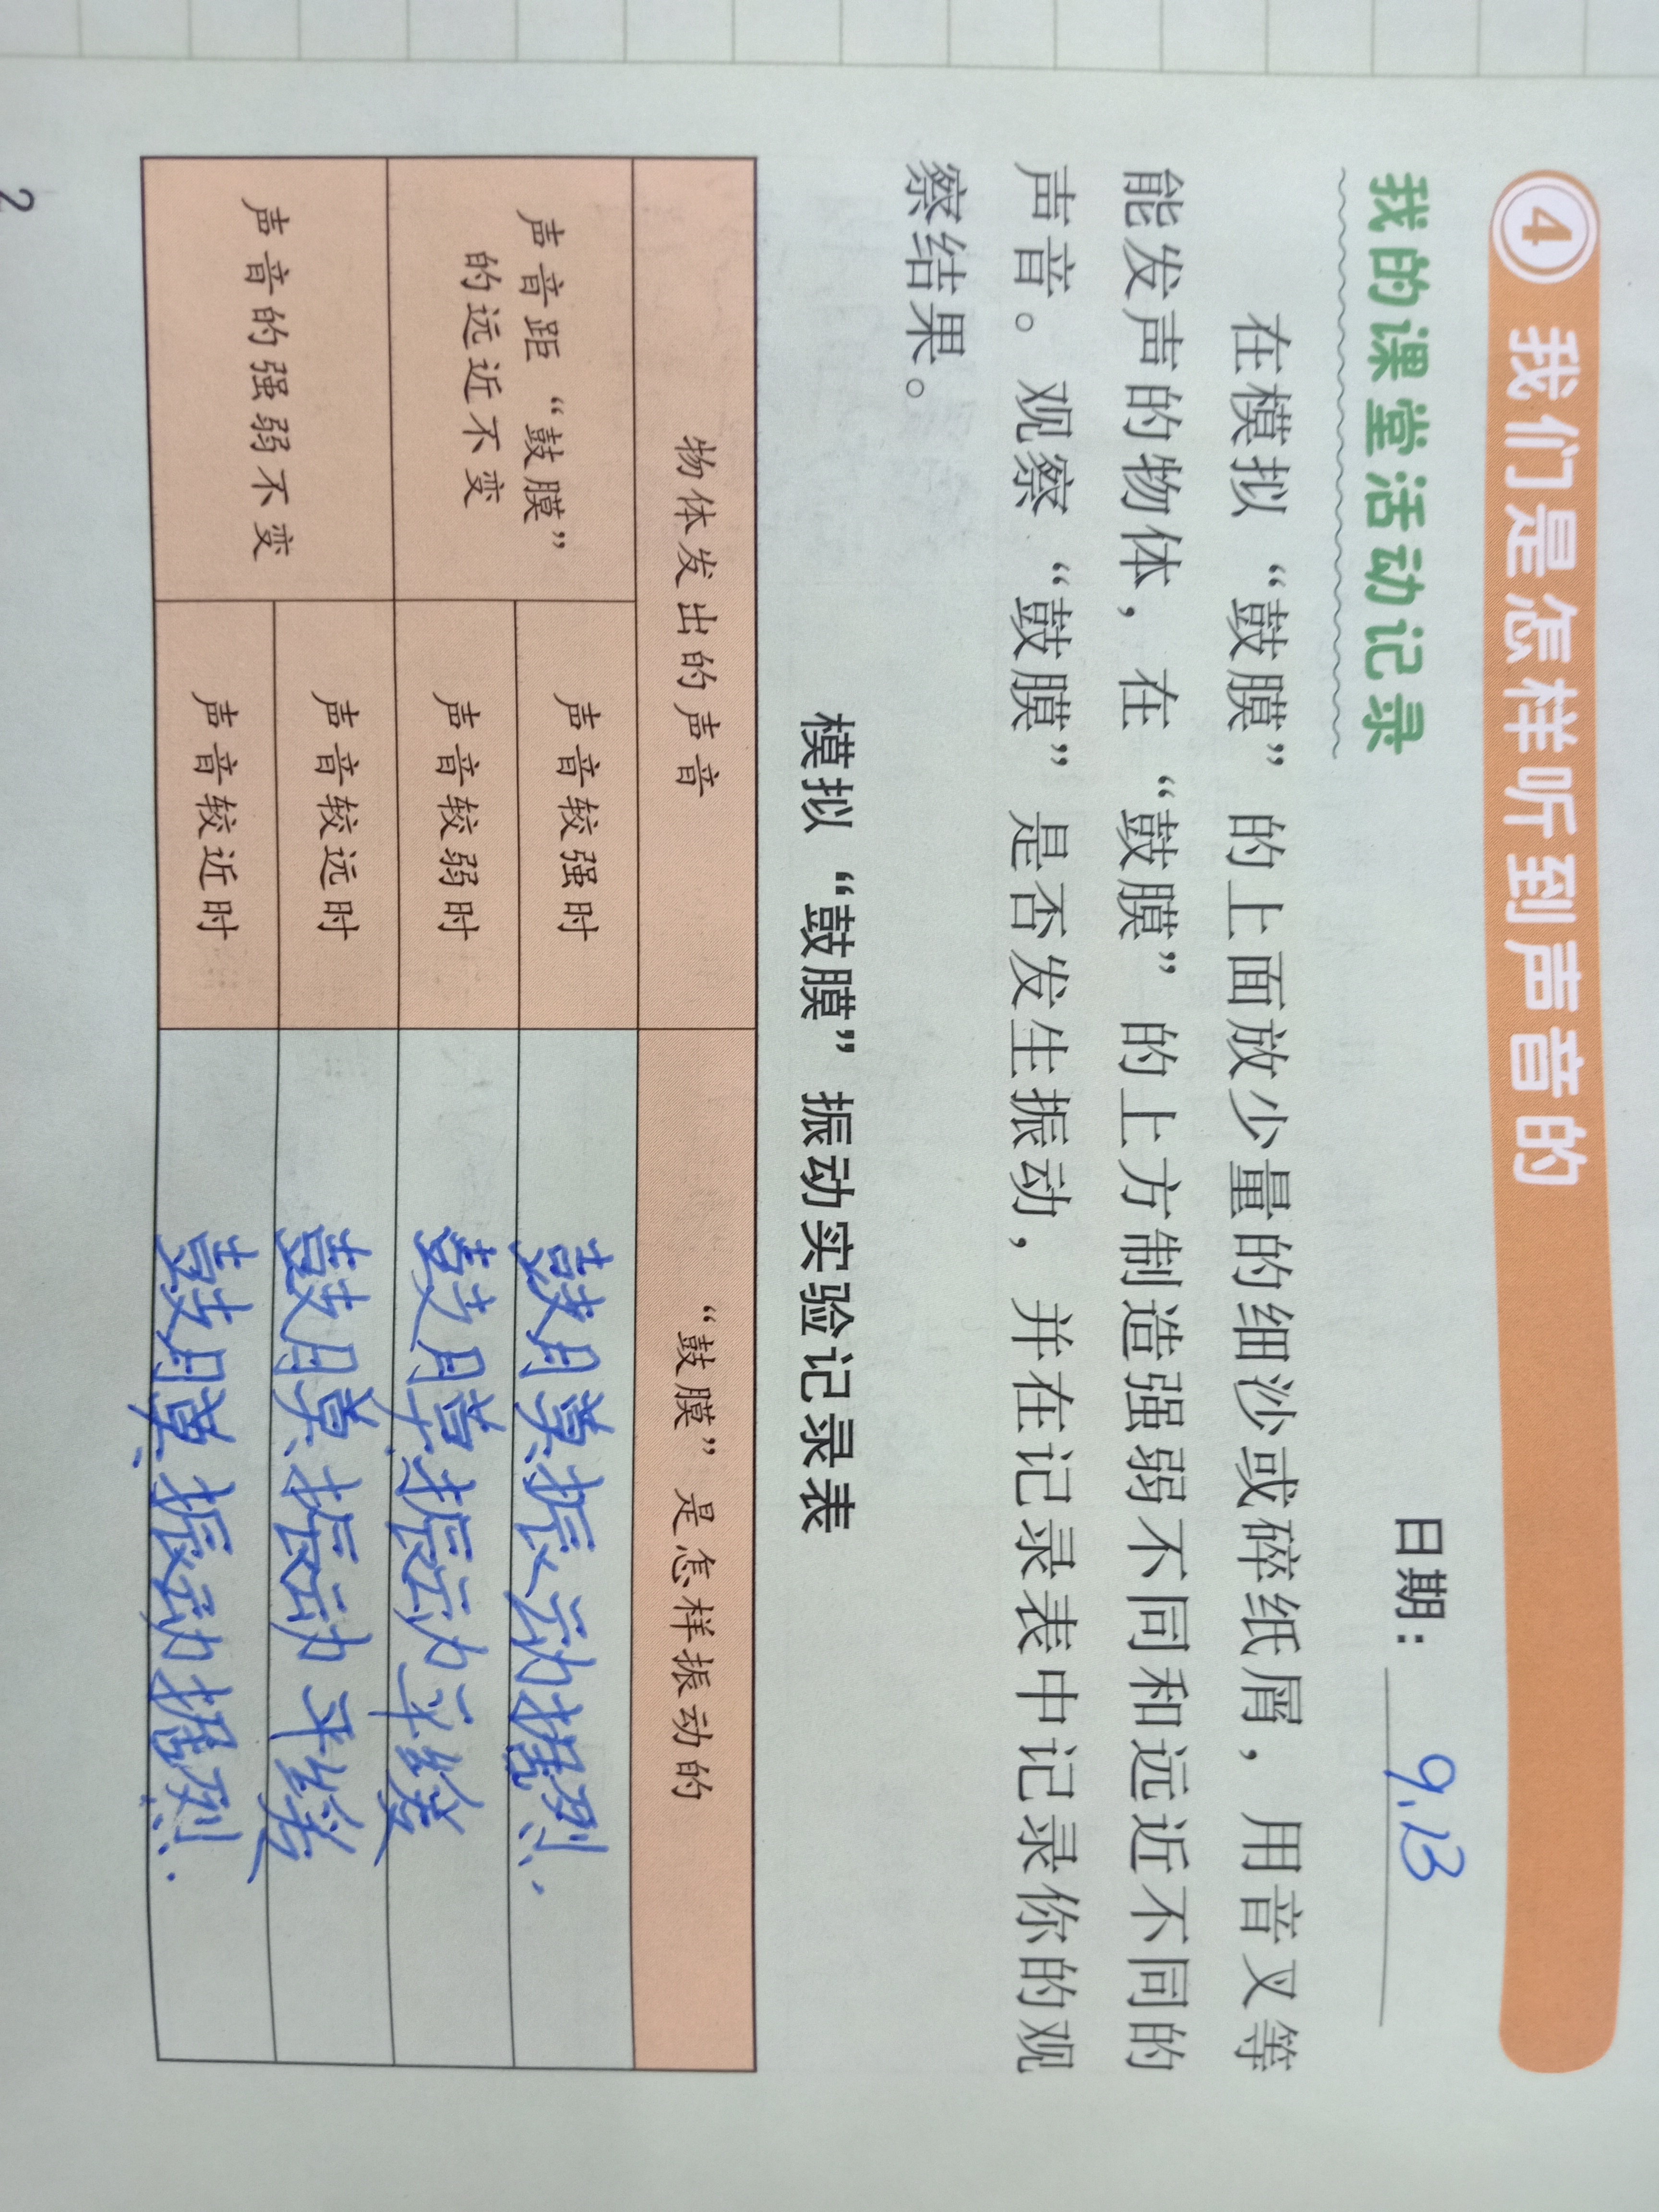 4 我们是怎样听到声音的
我的课堂活动记录
日期：9.13
在模拟“鼓膜”的上面放少量的细沙或碎纸屑，用音叉等
能发声的物体，在“鼓膜”的上方制造强弱不同和远近不同的
声音。观察“鼓膜”是否发生振动，并在记录表中记录你的观
察结果。
模拟“鼓膜”振动实验记录表
物体发出的声音 “鼓膜”是怎样振动的
声音距“鼓膜”
的远近不变
声音较强时 鼓膜振动据烈.
声音较弱时 鼓膜振动平缓
声音的强弱不变
声音较远时 鼓膜振动平缓
声音较近时 鼓膜振动据烈.
2